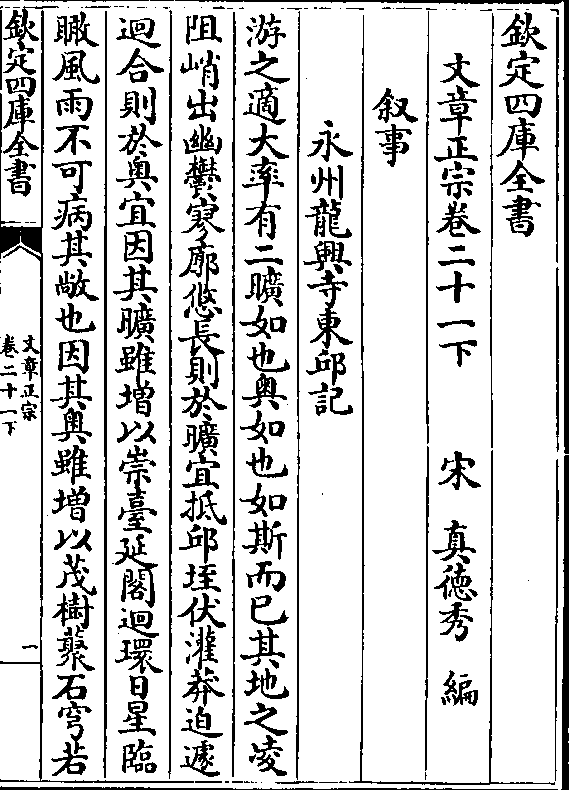 欽定四庫全書
文章正宗卷二十一下　宋　真徳秀　編
叙事
永州龍興寺東邱記
游之適大率有二曠如也奥如也如斯而已其地之凌
阻峭出幽鬱寥廓悠長則於曠宜抵邱垤伏灌莽迫遽
迴合則於奥宜因其曠雖增以崇臺延閣迴環日星臨
瞰風雨不可病其敞也因其奥雖増以茂樹䕺石穹若
欽定四庫全書
文章正宗
卷二十一下
一